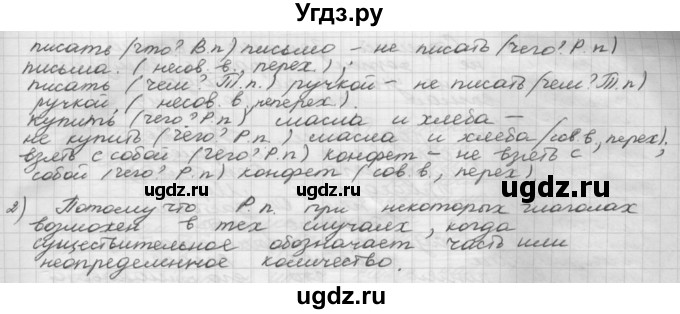 Угдз.ру
писать (что? В.п) письмо – не писать (чего? Р.п)
письма. (несов. в., перех.);
писать (чем? Т.п.) ручкой – не писать (чем? Т.п)
ручкой, (несов. в, неперех).
купить (чего? Р.п) масла и хлеба –
не купить (чего? Р.п.) масла и хлеба (сов.в, перех).
взять с собой (чего? Р.п) конфет – не взять с ;
собой (чего? Р.п) конфет (сов. в., перех)
2) Потому что Р.п. при некоторых глаголах
возможен в тех случаях, когда
существительное обозначает часть или
неопределенное количество.
ugdz.ru ugdz.ru ugdz.ru
ugdz.ru ugdz.ru ugdz.ru